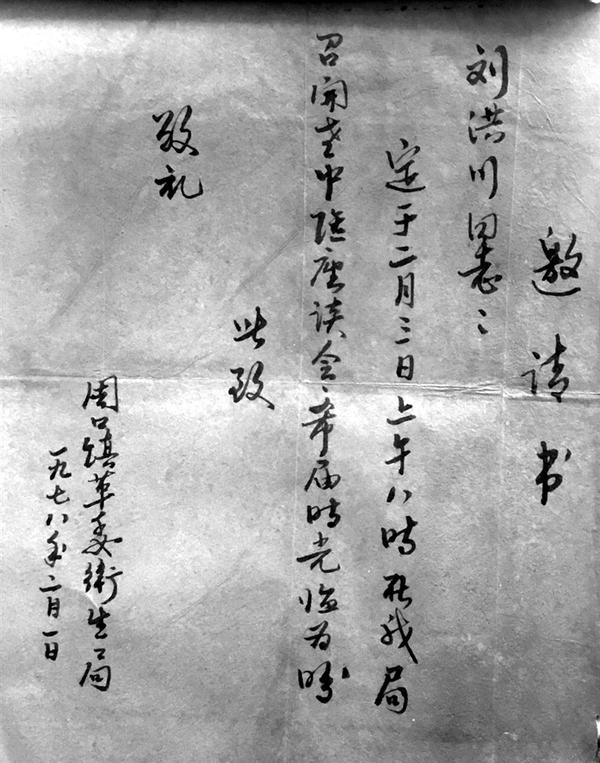 邀请书
刘洪川同志：
定于二月三日上午八时在我局
召开老中医座谈会，希届时光临为盼
此致
敬礼
周口镇革委衛生局
一九七八年二月一日